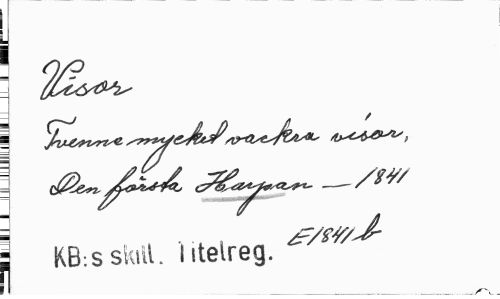 Visor
Tvenne mycket vackra visor,
Den första Harpan — 1841
E1841 b
KB:s skill. Titelreg.